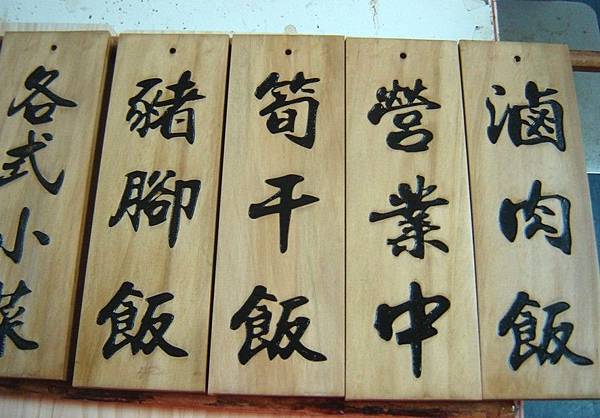 滷肉飯
營業中
筍干飯
豬腳飯
各式小菜